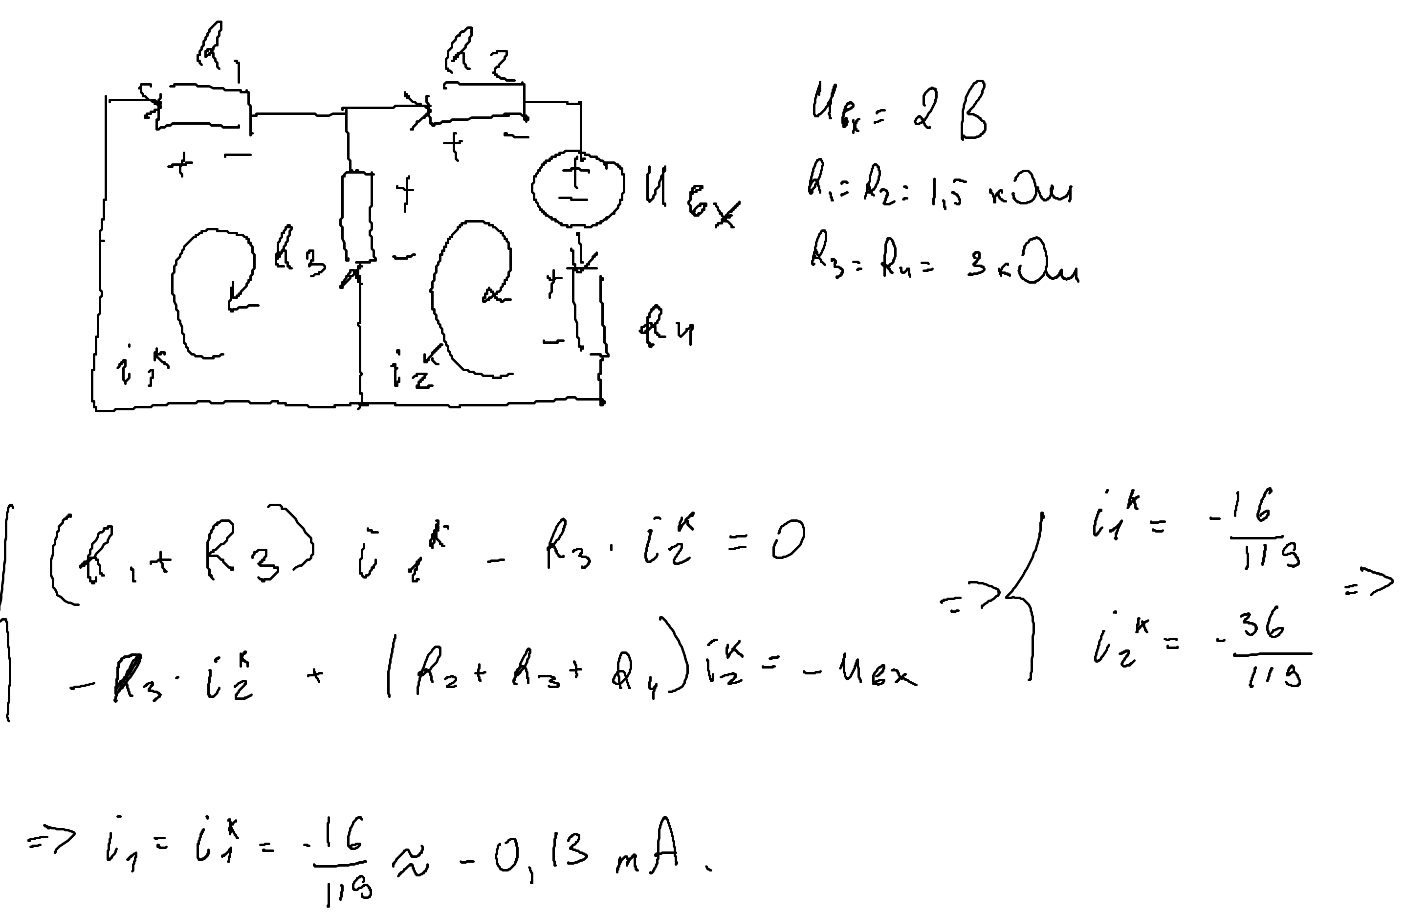 R₁ R₂
+ - + -
+
-
Uвх
R₃
+
-
+
-
R₄
i₁ᴷ i₂ᴷ
Uвх = 2 В
R₁ = R₂ = 1,5 кОм
R₃ = R₄ = 3 кОм
(R₁ + R₃) i₁ᴷ - R₃ · i₂ᴷ = 0
- R₃ · i₂ᴷ + (R₂ + R₃ + R₄) i₂ᴷ = - Uвх
=> { i₁ᴷ = -16/119
i₂ᴷ = -36/119 =>
=> i₁ = i₁ᴷ = -16/119 ≈ - 0,13 mA.